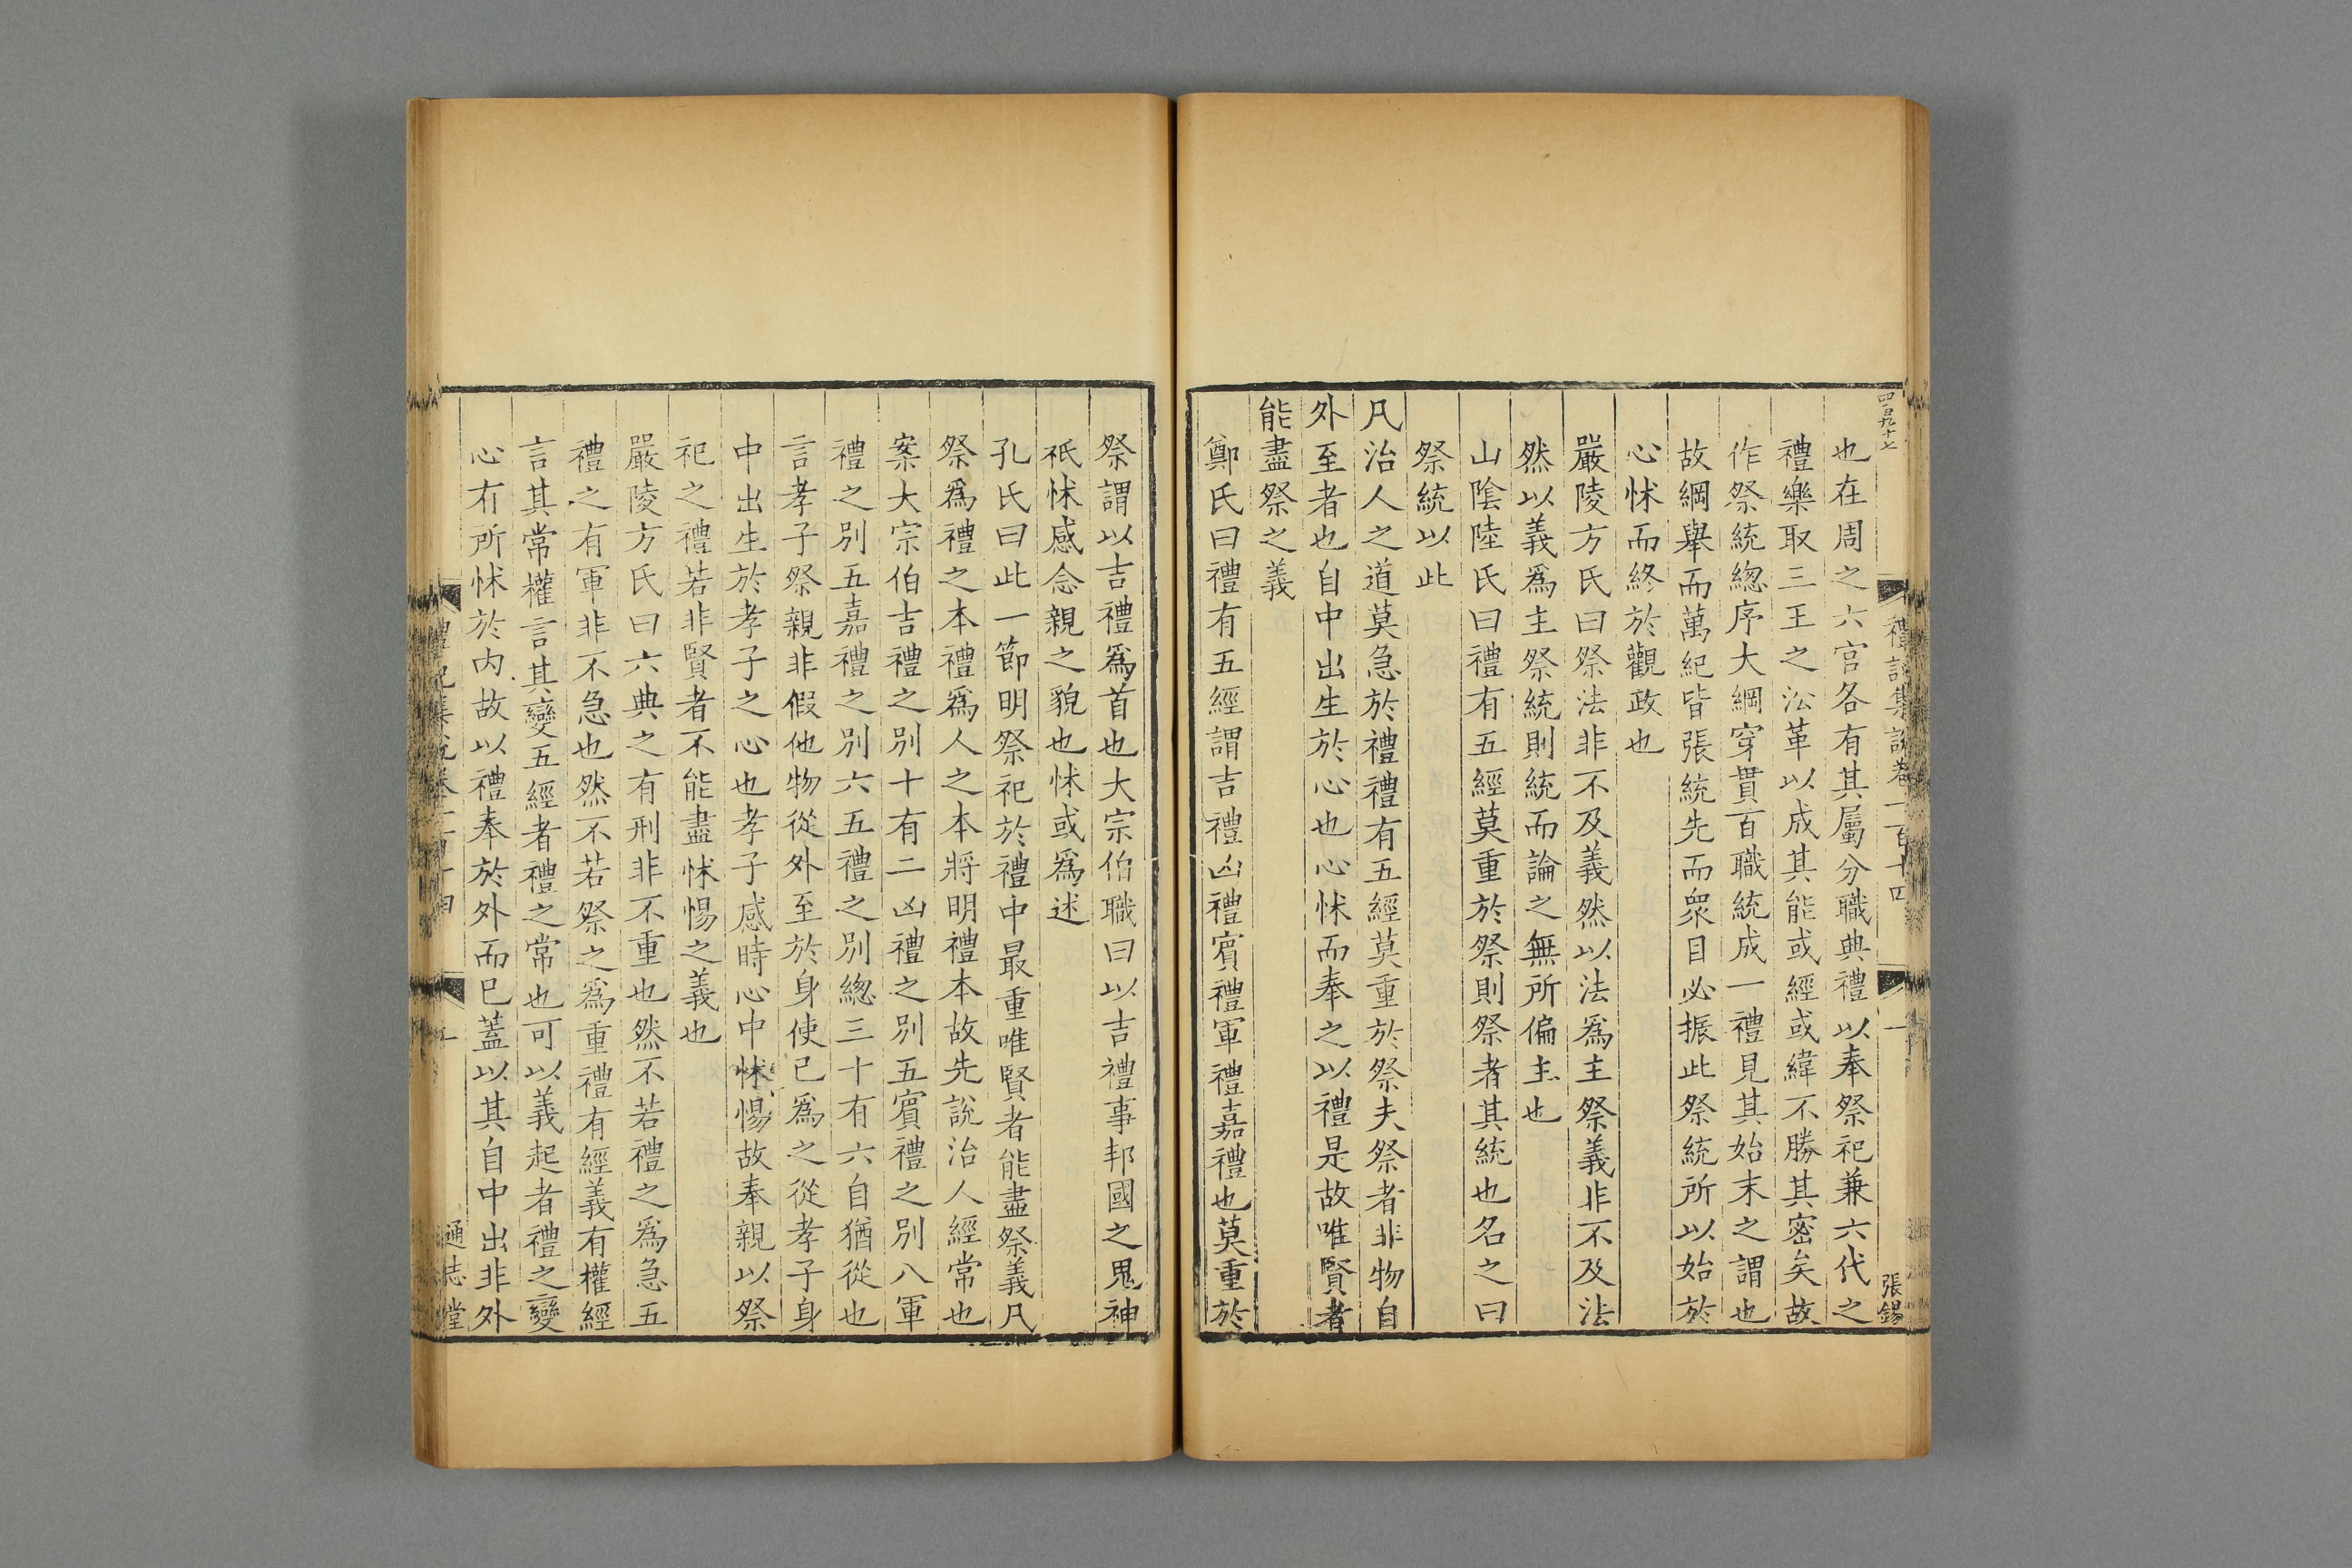 四百九十七
禮記集說卷一百十四
一
張錫
也在周之六官各有其屬分職典禮以奉祭祀兼六代之
禮樂取三王之㳂革以成其能或經或緯不勝其密矣故
作祭統緫序大綱穿貫百職統成一禮見其始末之謂也
故綱舉而萬紀皆張統先而衆目必振此祭統所以始於
心怵而終於觀政也
嚴陵方氏曰祭法非不及義然以法爲主祭義非不及法
然以義爲主祭統則統而論之無所偏主也
山隂陸氏曰禮有五經莫重於祭則祭者其統也名之曰
祭統以此
凡治人之道莫急於禮禮有五經莫重於祭夫祭者非物自
外至者也自中出生於心也心怵而奉之以禮是故唯賢者
能盡祭之義
鄭氏曰禮有五經謂吉禮凶禮賓禮軍禮嘉禮也莫重於
祭謂以吉禮爲首也大宗伯職曰以吉禮事邦國之鬼神
祇怵感念親之貌也怵或爲述
孔氏曰此一節明祭祀於禮中最重唯賢者能盡祭義凡
祭爲禮之本禮爲人之本將明禮本故先說治人經常也
案大宗伯吉禮之別十有二凶禮之別五賓禮之別八軍
禮之別五嘉禮之別六五禮之別緫三十有六自猶從也
言孝子祭親非假他物從外至於身使已爲之從孝子身
中出生於孝子之心也孝子感時心中怵惕故奉親以祭
祀之禮若非賢者不能盡怵惕之義也
嚴陵方氏曰六典之有刑非不重也然不若禮之爲急五
禮之有軍非不急也然不若祭之爲重禮有經義有權經
言其常權言其變五經者禮之常也可以義起者禮之變
心有所怵於内故以禮奉於外而已蓋以其自中出非外
禮記集說卷一百十四
通志堂